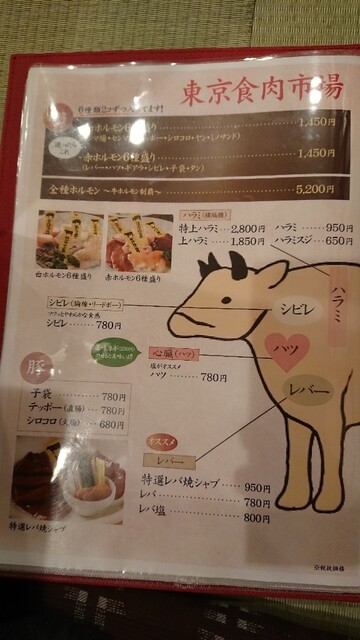 東京食肉市場
6種類2コずつ入ってます!
迷ったらこれ
白ホルモン6種盛り 1,450円
赤ホルモン6種盛り 1,450円
(レバー・ハツ・ギアラ・シビレ・子袋・タン)
全種ホルモン ～牛ホルモン制覇～ 5,200円
白ホルモン6種盛り
赤ホルモン6種盛り
ハラミ(横隔膜)
特上ハラミ 2,800円
上ハラミ 1,850円
ハラミ 950円
ハラミスジ 650円
シビレ(胸腺・リードボー)
シビレ 780円
心臓(ハツ)
塩がオススメ
ハツ 780円
ハラミ
シビレ
ハツ
レバー
豚
子袋 780円
テッポー(直腸) 780円
シロコロ(大腸) 680円
特選レバ焼シャブ
オススメ
レバー
特選レバ焼シャブ 950円
レバ 780円
レバ塩 800円
※税抜価格